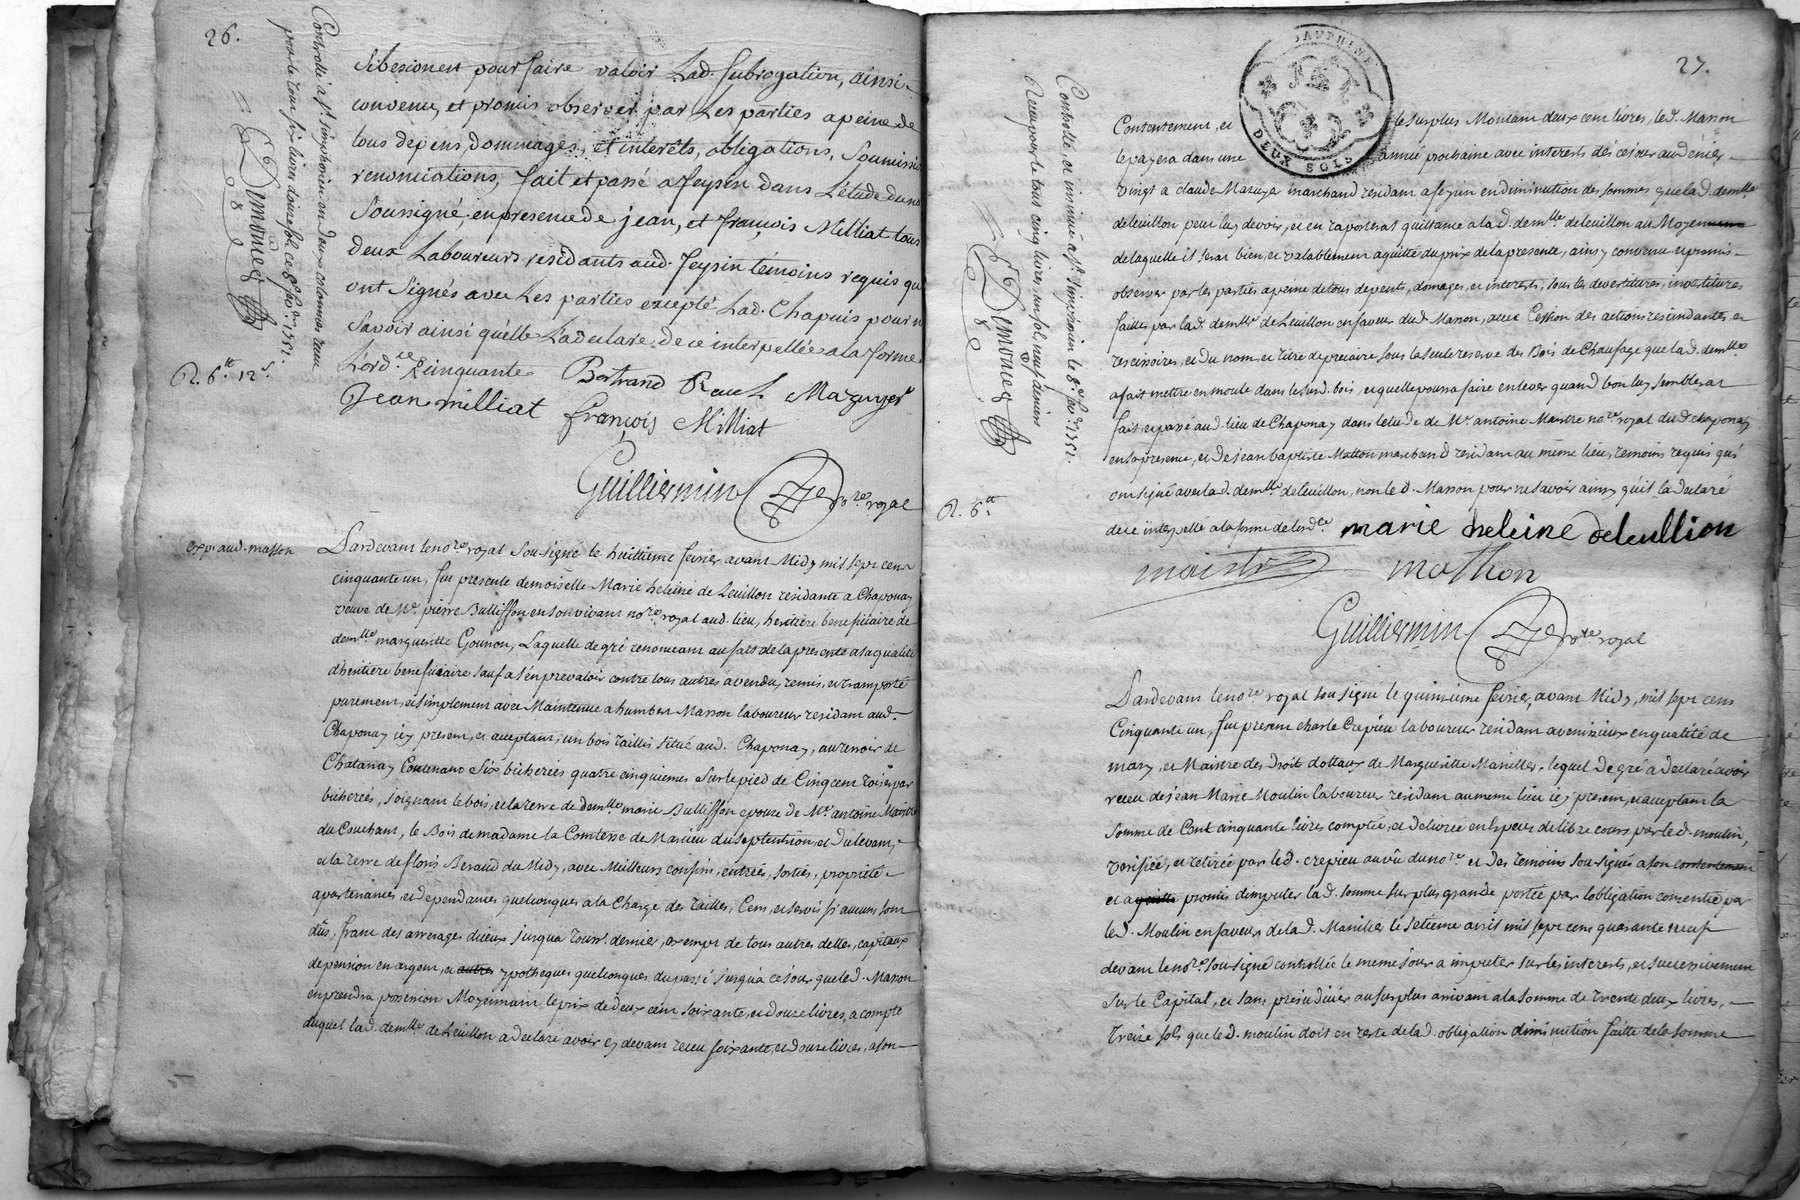 26.
Controllé a st. simphorien en deux colomnes, receu
pour le tout six livres douze sols, ce 8e fev. 1751.
Demones
8
sibesioneit pour faire valoir Lad. subrogation, ainsi
convenu, et promis observer par Les parties a peine de
tous depens, dommages, et interêts, obligations, soumissions
renonciations, fait et passé a feysin dans L'étude du no
soussigné, en presence de jean, et françois Milliat tous
deux Laboureurs residants aud. feysin témoins requis qui
ont signés avec Les parties excepté Lad. Chapuis pour ne
savoir ainsi qu'elle L'a declaré, de ce interpellée a la forme
L'ordce.
R. 6tt 12s.
Bertrand Mazuyer
Jean milliat
françois Milliat
Guilliermin nore royal
exp. aud. masson
Pardevant le nore royal soussigné le huitieme fevrier avant Midy mil sept cens
cinquante un, fut presente demoiselle Marie heleine de Leuillon residante a Chaponay
veuve de Me. pierre Bullisson en son vivant nore royal aud. lieu, heritiere beneficiaire de
demlle marguerite Gounon, Laquelle de gré renoncant au fait de la presente a sa qualité
d'heritiere beneficiaire sauf a s'en prevaloir contre tous autres a vendu, remis, et transporté
purement, et simplement avec Maintenue a humbert Masson laboureur residant aud.
Chaponay icy present, et acceptant, un bois taillis situé aud. Chaponay, au terroir de
Chatanay Contenant Six bicherées quatre cinquiemes sur le pied de Cinq cent toises par
bicherées, joignant le bois, et la terre de demlle marie Bullisson epouze de Me. antoine Maistre
du Couchant, le Bois de madame la Comtesse de Marcieu du septentrion, et du levant,
et la terre de floris Beraud du Midy, avec Meilleurs confins, entrées, sorties, proprieté
apartenances, et dependances quelconques a la Charge des tailles, Cens, et servis si aucuns sont
dûs, franc des arrerages d'iceux jusqu'a toust. dernier, exempt de tous autres dettes, capitaux
de pension en argent, et autres ypotheques quelconques du passé jusqu'a ce jour, que led. Masson
en prendra possession Moyennant le prix de deux cent soixante, et douze livres, a compte
duquel lad. demlle de Leuillon a declaré avoir cy devant receu soixante, et douze livres, a son
27.
DAUPHINÉ
DEUX SOLS
Controllé et insinué a st. simphorien le 8e fev. 1751.
Receu pour le tout cinq livres, un sol, neuf deniers
Demones
8
R. 6tt
Contentement, et le surplus Montant deux cent livres, led. Masson
le payera dans une année prochaine avec interests dés ce jour au denier
vingt a claude Mazuyer marchand residant a feyzin en diminution des sommes que lad. demlle
deleuillon peut luy devoir, et en raportera quittance a lad. demlle deleuillon au Moyen
de laquelle il sera bien, et valablement aquitté du prix de la presente, ainsy convenu et promis
observer par les parties a peine de tous depents, domages, et interests, sous les devestitures, investitures
faittes par lad. demlle de Leuillon en faveur dud. Masson, avec Cession des actions rescindantes, et
rescisoires, et du nom, et titre de precaire sous la seule reserve des Bois de Chaufage que lad. demlle
a fait mettre en moule dans le sud. bois, et qu'elle pourra faire enlever quand bon luy semblera
fait et passé aud. lieu de Chaponay dans l'etude de Me. antoine Maistre nore royal dud. chaponay
en sa presence, et de jean baptiste Mathon marchand residant au même lieu, temoins requis qui
ont signé avec lad. demlle deleuillon, non led. Masson pour ne savoir ainsy qu'il l'a declaré
de ce interpellé a la forme de l'ordce marie heleine deleullion
maistre mathon
Guilliermin nore royal
Pardevant le nore royal soussigné le quinzieme fevrier, avant Midy, mil sept cens
Cinquante un, fut present charle Crepieu laboureur residant a venissieux en qualité de
mary, et Maistre des droit dottaux de Marguerite Manillier, lequel de gré a declaré avoir
receu de jean Marie Moulin laboureur residant au meme lieu icy present, et acceptant la
somme de Cent cinquante livres comptée, et delivrée en Especes de libre cours par led. moulin,
verifiée, et retirée par led. crepieu au vû du nore et des temoins soussignés a son contentement
et a quitte promis d'imputer lad. somme sur plus grande portée par l'obligation consentie par
led. Moulin en faveur de lad. Manillier le setieme avril mil sept cens quarante neuf
devant le nore. soussigné controllée le meme jour a imputer sur les interests, et successivement
sur le Capital, et sans prejudicier au surplus arrivant a la somme de trente deux livres,
treize sols que led. moulin doit en reste de lad. obligation diminution faitte de la somme